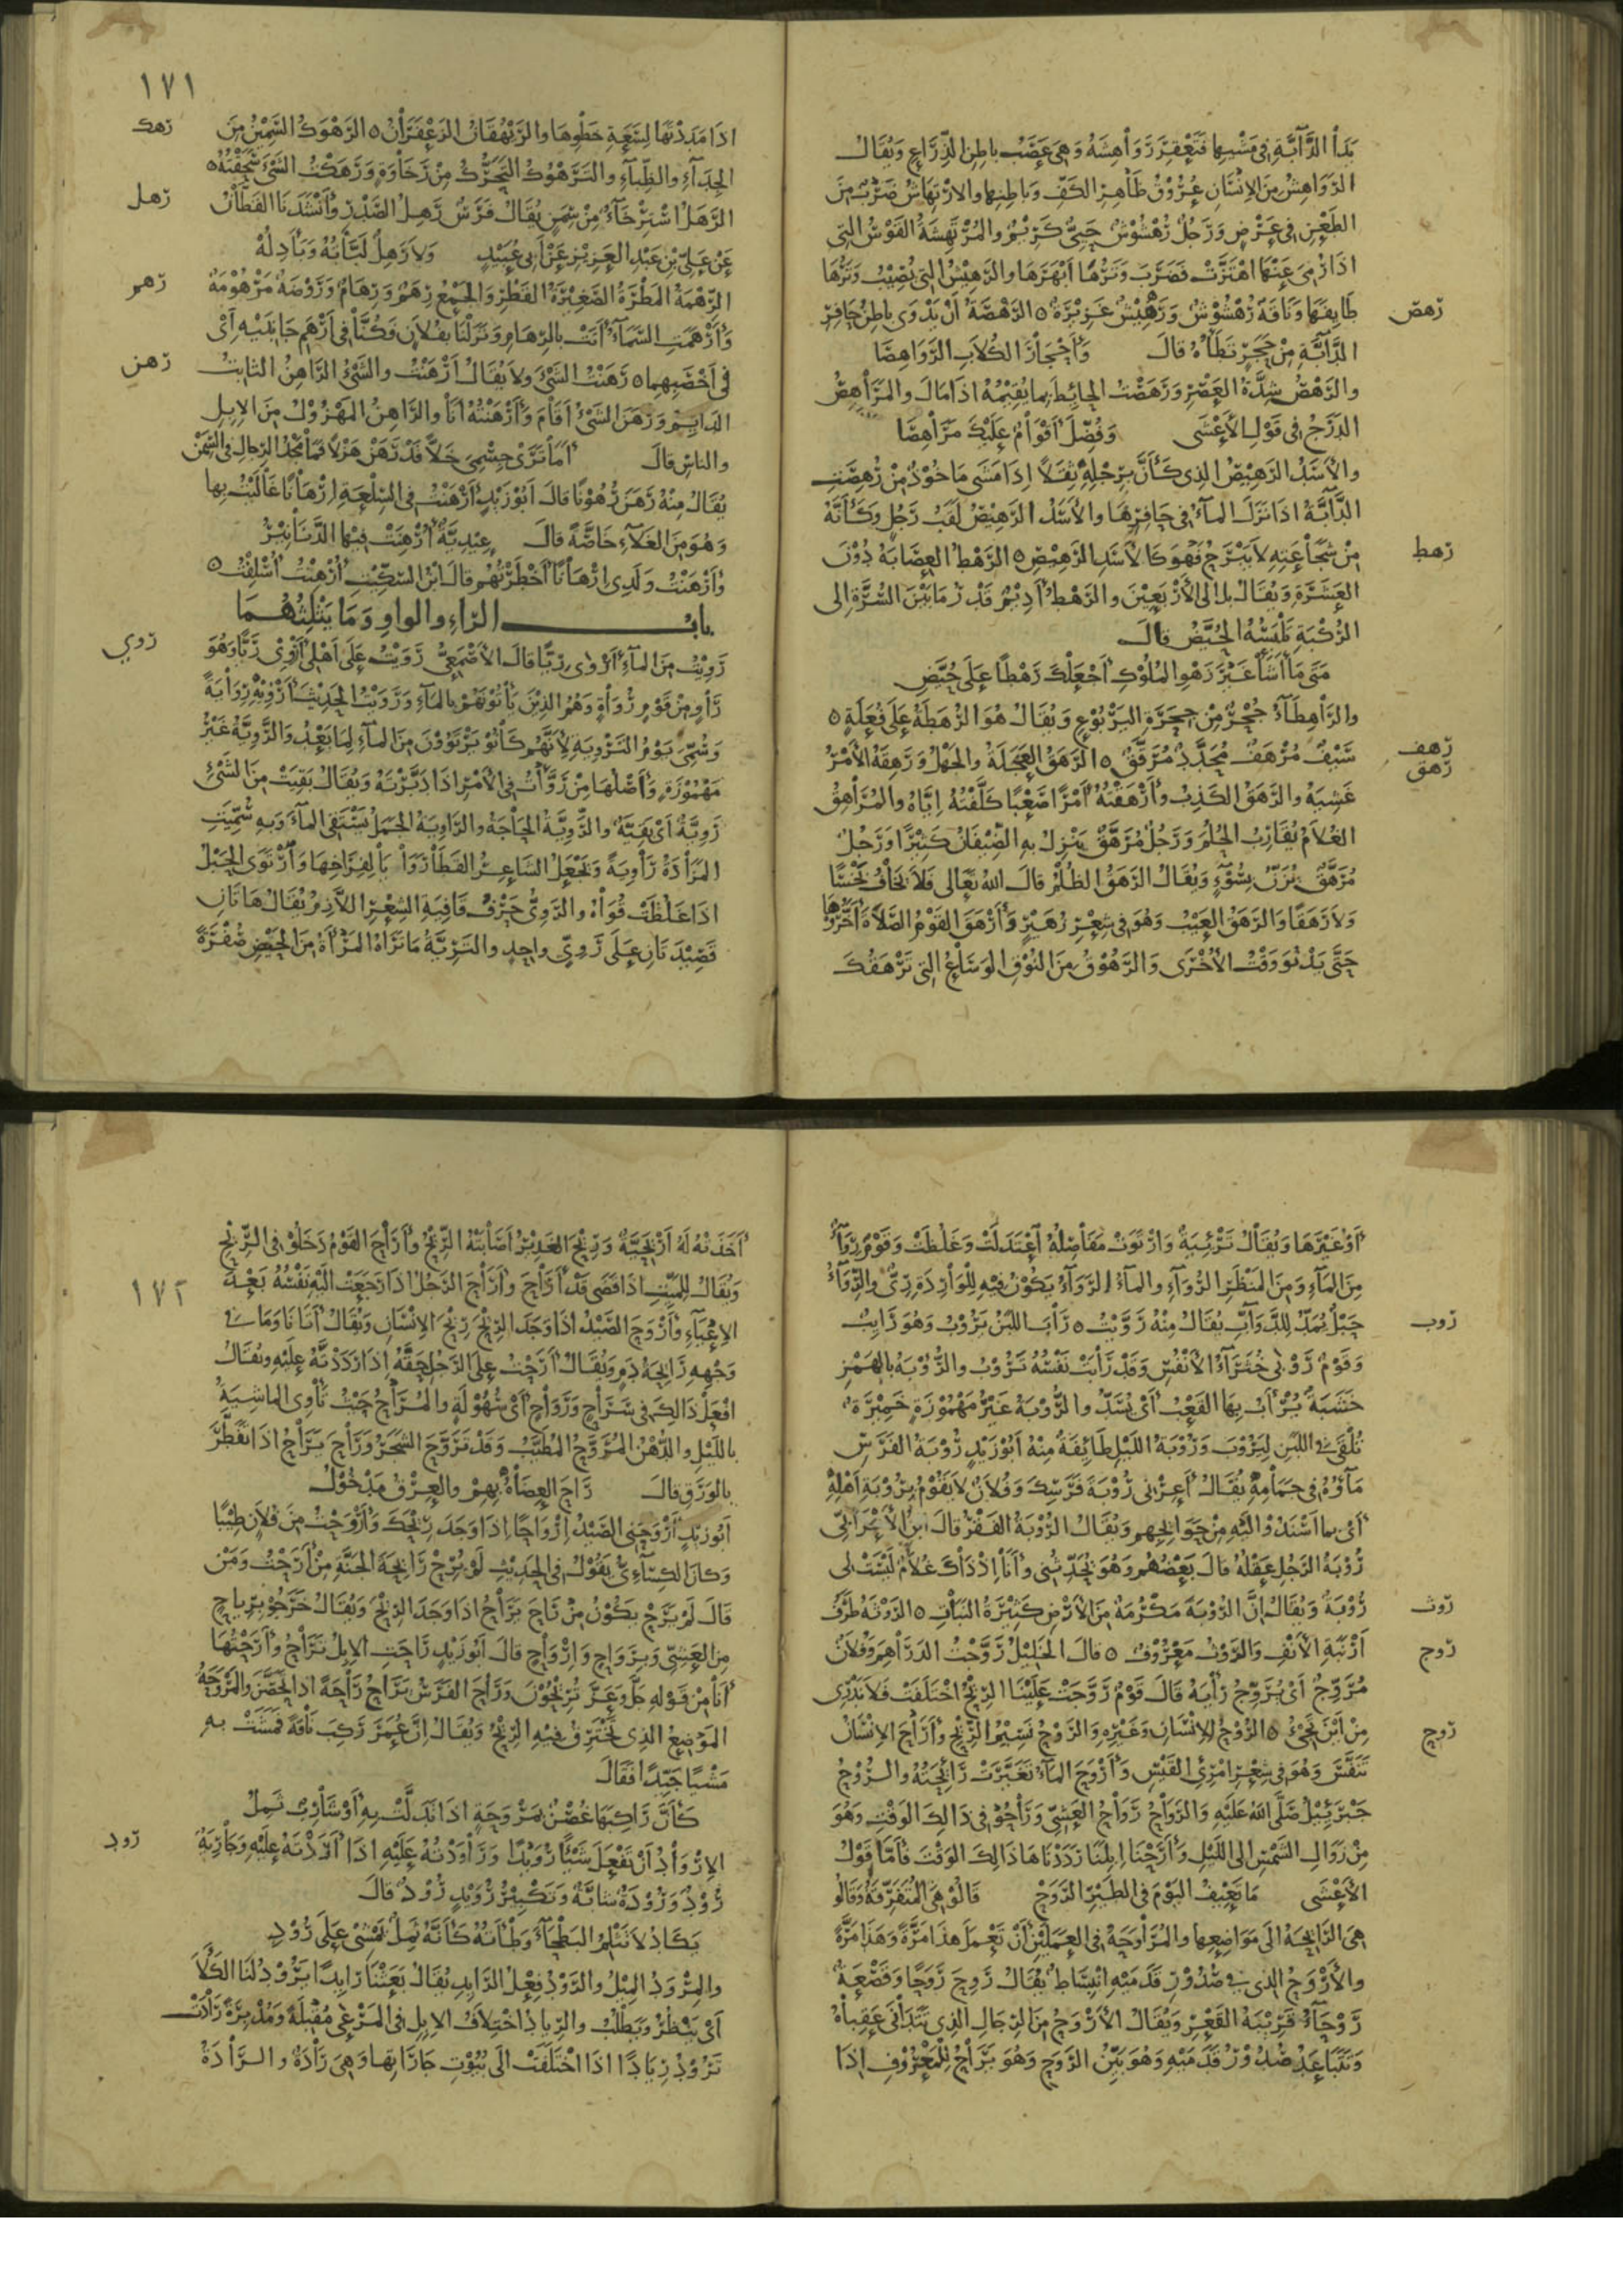 يدا الدَّابَّةِ في مَشْيِها فَتَعْقِرُ رَوَاهِشَهُ وَهِيَ عَصَبُ باطِنِ الذِّرَاعِ وَيُقَالُ
الرَّوَاهِشُ مِنَ الإِنْسَانِ عُرُوْقُ ظَاهِرِ الكَفِّ وَبَاطِنِها والارْتِهَاشُ ضَرْبٌ مِنَ
الطَّعْنِ في عَرْضٍ وَرَجُلٌ رُهْشُوْشٌ حَيِيٌّ كَرِيْمٌ والمُرْتَهِشَةُ القَوْسُ التي
اذَا رُمِيَ عَنْهَا اهْتَزَّتْ فَضَرَبَ وَتَرُهَا أَبْهَرَهَا والرَّهِيْشُ التي يُصِيْبُ وَتَرُهَا
رهص
طَايِفَهَا وَنَاقَةٌ رُهْشُوْشٌ وَرَهِيْشٌ غَزِيْرَةٌ ٥ الرَّهْصَةُ أَنْ يَدْوى باطِنُ حَافِرِ
الدَّابَّةِ مِنْ حَجَرٍ تَطَأُهُ قالَ وَأَحْجَارُ الكُلَابِ الرَّوَاهِصَا
والرَّهْصُ شِدَّةُ العَصْرِ وَرَهَصْتُ الحايِطَ بما يُقِيْمُهُ اذَا مَالَ والمَرَاهِصُ
الدَّرَجُ في قَوْلِ الأَعْشَى وَفُضِّلَ أَقْوَامٌ عَلَيْكَ مَرَاهِصَا
والأَسَدُ الرَّهِيْصُ الذي كَأَنَّ بِرِجْلِهِ ثِقَلاً اذَا مَشَى مَاخُوْذٌ مِنْ رُهِصَتِ
الدَّابَّةُ اذَا نَزَلَ المآءُ في حَافِرِهَا والأَسَدُ الرَّهِيْصُ لَقَبُ رَجُلٍ وَكَأَنَّهُ
رهط
مِنْ شَجَاعَتِهِ لاَ يَبْرَحُ فَهُوَ كَالأَسَدِ الرَّهِيْصِ ٥ الرَّهْطُ العِصَابَةُ دُوْنَ
العَشَرَةِ وَيُقَالُ بل الى الأَرْبَعِيْنَ والرَّهْطُ أَدِيْمٌ قَدْرُ مَا بَيْنَ السُّرَّةِ الى
الرُّكْبَةِ تَلْبَسُهُ الحُيَّضُ قالَ
مَتَى مَا أَشَأْ غَيْرَ زَهْوِ المُلُوْكِ أَجْعَلْكَ رَهْطًا عَلَى حُيَّضِ
والرَّاهِطَآءُ جُحْرٌ مِنْ جِحَرَةِ اليَرْبُوْعِ وَيُقَالُ هُوَ الرُّهَطَةُ عَلَى فُعَلَةٍ ٥
رهف
رهق
سَيْفٌ مُرْهَفٌ مُحَدَّدٌ مُرَقَّقٌ ٥ الرَّهَقُ العَجَلَةُ والجَهْلُ وَرَهِقَهُ الأَمْرُ
غَشِيَهُ والرَّهَقُ الكَذِبُ وأَرْهَقْتُهُ أَمْرًا صَعْبًا كَلَّفْتُهُ اِيَّاهُ والمُرَاهِقُ
الغُلاَمُ يُقَارِبُ الحُلُمَ وَرَجُلٌ مُرَهَّقٌ يَنْزِلُ بهِ الضِّيْفَانُ كَثِيْرًا وَرَجُلٌ
مُرَهَّقٌ يُزَنُّ بِسُوْءٍ وَيُقَالُ الرَّهَقُ الظُّلْمُ قالَ اللهُ تَعَالى فَلاَ يَخَافُ بَخْسًا
وَلاَ رَهَقًا وَالرَّهَقُ العَيْبُ وَهُوَ في شِعْرِ زُهَيْرٍ وَأَرْهَقَ القَوْمُ الصَّلاَةَ أَخَّرُوْهَا
حَتَّى يَدْنُوَ وَقْتُ الأُخْرَى وَالرَّهُوْقُ مِنَ النُّوْقِ الوَسَاعُ التي تَرْهَقُكَ
١٧١
رهك
اذَا مَدَدْتَها لِسَعَةِ خَطْوِهَا والرَّيْهُقَانُ الزَّعْفَرَانُ ٥ الرَّهْوَكُ السَّمِيْنُ مِنَ
الجِدَآءِ والظِّبَآءِ والتَّرَهْوُكُ التَّحَرُّكُ مِنْ رَخَاوَةٍ وَرَهَكْتُ الشَّيْءَ سَحَقْتُهُ ٥
رهل
الرَّهَلُ اسْتِرْخَآءٌ مِنْ سِمَنٍ يُقَالُ فَرَسٌ رَهِلُ الصَّدْرِ وأَنْشَدَنَا القَطَّانُ
عَنْ عَلِيِّ بْنِ عَبْدِ العَزِيْزِ عَنْ أَبي عُبَيْدٍ وَلاَ رَهِلٌ لَبَّاتُهُ وَبَآدِلُهْ
رهم
الرِّهْمَةُ المَطْرَةُ الصَّغِيْرَةُ القَطْرِ وَالجَمْعُ رِهَمٌ وَرِهَامٌ وَرَوْضَةٌ مَرْهُوْمَةٌ
وَأَرْهَمَتِ السَّمَآءُ أَتَتْ بالرِّهَامِ وَنَزَلْنَا بفُلاَنٍ فَكُنَّا في أَرْهَمِ جَانِبَيْهِ اَيْ
رهن
في أَخْصَبِهِما ٥ رَهَنْتُ الشَّيْءَ وَلاَ يُقَالُ أَرْهَنْتُ والشَّيْءُ الرَّاهِنُ الثَّابِتُ
الدَّايِمُ وَرَهَنَ الشَّيْءُ أَقَامَ وَأَرْهَنْتُهُ أَنَا والرَّاهِنُ المَهْزُوْلُ مِنَ الإِبِلِ
والناسِ قالَ أَمَا تَرَيْ جِسْمِيَ خَلاًّ قَدْ رَهَنْ هَزْلاً فَمَا مَجْدُ الرِّجالِ في السِّمَنْ
يُقَالُ مِنْهُ رَهَنَ رُهُوْنًا قالَ أَبُوْ زَيْدٍ أَرْهَنْتُ في السِّلْعَةِ اِرْهَانًا غَالَيْتُ بِها
وَهُوَ مِنَ الغَلاَءِ خَاصَّةً قالَ عِيْدِيَّةٌ أُرْهِنَتْ فِيْها الدَّنَانِيْرُ
وَأَرْهَنْتُ وَلَدِي اِرْهَانًا أَخْطَرْتُهُم قالَ ابْنُ السِّكِّيْتِ أَرْهَنْتُ أَسْلَفْتُ ٥
بابُ الرَّاءِ والواوِ وَمَا يَثْلِثُهُمَا
روي
رَوِيْتُ مِنَ المآءِ أَرْوَى رِيًّا قالَ الأَصْمَعِيُّ رَوَيْتُ عَلَى أَهْلي أَرْوِي رَيًّا وَهُوَ
رَاوٍ مِنْ قَوْمٍ رُوَاةٍ وَهُمُ الذِيْنَ يَأْتُوْنَهُمْ بالمآءِ وَرَوَيْتُ الحَدِيْثَ أَرْوِيْهِ رِوَايَةً
وَسُمِّيَ يَوْمُ التَّرْوِيَةِ لأَنَّهُمْ كَانُوْ يَرْتَوُوْنَ مِنَ المآءِ لِمَا بَعْدُ وَالرَّوِيَّةُ غَيْرُ
مَهْمُوْزَةٍ وَأَصْلُهَا مِنْ رَوَّأْتُ في الأَمْرِ اذَا دَبَّرْتَهُ وَيُقَالُ بَقِيَتْ مِنَ الشَّيْءِ
رَوِيَّةٌ أَيْ بَقِيَّةٌ والرَّوِيَّةُ الحَاجَةُ والرَّاوِيَةُ الجَمَلُ يُسْتَقَى المآءُ وَبِهِ سُمِّيَتِ
المَزَادَةُ رَاوِيَةً وَيَجْعَلُ الشَّاعِرُ القَطَا رَوَايَا لِفِرَاخِهَا وَارْتَوَى الحَبْلُ
اذَا غَلُظَتْ قُوَاهُ والرَّوِيُّ حَرْفُ قَافِيَةِ الشِّعْرِ اللاَّزِمُ يُقَالُ هَاتَانِ
قَصِيْدَتَانِ عَلَى رَوِيٍّ واحِدٍ والتَّرِيَّةُ مَا تَرَاهُ المَرْأَةُ مِنَ الحَيْضِ صُفْرَةً
أَوْ غَيْرَهَا وَيُقَالُ تَرْئِيَةٌ وَارْتَوَتْ مَفَاصِلُهُ اعْتَدَلَتْ وَغَلُظَتْ وَقَوْمٌ رِوَآءٌ
مِنَ المَآءِ وَمِنَ المَنْظَرِ الرُّوَآءِ والمآءُ الرَّوَآءُ يَكُوْنُ فِيْهِ لِلْوَارِدَةِ رِيٌّ والرِّوَآءُ
روب
حَبْلٌ يُمَدُّ لِلدَّوَابِّ يُقَالُ مِنْهُ رَوَّيْتُ ٥ رَابَ اللَّبَنُ يَرُوْبُ وَهُوَ رَايِبٌ
وَقَوْمٌ رَوْبَى خُثَرَآءُ الأَنْفُسِ وَقَدْ رَابَتْ نَفْسُهُ تَرُوْبُ والرُّؤْبَةُ بالهَمْزِ
خَشَبَةٌ يُرْأَبُ بِهَا القَعْبُ أَيْ يُسَدُّ والرُّوْبَةُ غَيْرُ مَهْمُوْزَةٍ خَمِيْرَةٌ
تُلْقَى في اللَّبَنِ لِيَرُوْبَ وَرُوْبَةُ اللَّيْلِ طَائِفَةٌ مِنْهُ أَبُوْ زَيْدٍ رُوْبَةُ الفَرَسِ
مَآؤُهُ في جَمَامِهِ يُقَالُ أَعِرْني رُوْبَةَ فَرَسِكَ وَفُلاَنٌ لاَ يَقُوْمُ بِرُوْبَةِ أَهْلِهِ
أَيْ بما أَسْنَدُوْا الَيْهِ مِنْ حَوَايِجِهِم وَيُقَالُ الرُّوْبَةُ الفَقْرُ قالَ ابنُ الأَعْرَابيِّ
رُوْبَةُ الرَّجُلِ عَقْلُهُ قالَ بَعْضُهُمْ وَهُوَ يُحَدِّثُني وأَنَا اِذْ ذَاكَ غُلاَمٌ لَيْسَتْ لي
روث
رُوْبَةٌ وَيُقَالُ اِنَّ الرُّوْبَةَ مَكْرُمَةٌ مِنَ الأَرْضِ كَثِيْرَةُ النَّبَاتِ ٥ الرَّوْثَةُ طَرَفُ
روج
أَرْنَبَةِ الأَنْفِ والرَّوْثُ مَعْرُوْفٌ ٥ قالَ الخَلِيْلُ رَوَّجْتُ الدَّرَاهِمَ وَفُلاَنٌ
مُرَوِّجٌ أَيْ يُرَوِّجُ رَأْيَهُ قالَ قَوْمٌ رَوَّجَتْ عَلَيْنَا الرِّيْحُ اخْتَلَفَتْ فَلاَ نَدْرِي
روح
مِنْ أَيْنَ تَجِيْءُ ٥ الرُّوْحُ لِلاِنْسَانِ وَغَيْرِهِ والرَّوْحُ نَسِيْمُ الرِّيْحِ وَأَرَاحَ الإِنْسَانُ
تَنَفَّسَ وَهُوَ في شِعْرِ امْرِئِ القَيْسِ وَأَرْوَحَ المآءُ تَغَيَّرَتْ رَايِحَتُهُ والرُّوْحُ
جَبْرَئِيْلُ صَلَّى اللهُ عَلَيْهِ والرَّوَاحُ رَوَاحُ العَشِيِّ وَرَاحُوْ في ذَالِكَ الوَقْتِ وَهُوَ
مِنْ زَوَالِ الشَّمْسِ الى اللَّيْلِ وَأَرَحْنَا اِبِلَنَا رَدَدْنَاهَا ذَالِكَ الوَقْتَ فَأَمَّا قَوْلُ
الأَعْشَى مَا تَعِيْفُ اليَوْمَ في الطَّيْرِ الرَّوَحْ قَالُوْ هِيَ المُتَفَرِّقَةُ وَقَالُو
هِيَ الرَّايِحَةُ الَى مَوَاضِعِها والمُرَاوَحَةُ في العَمَلَيْنِ أَنْ تَعْمَلَ هذَا مَرَّةً وَهَذَا مَرَّةً
والأَرْوَحُ الذي في صُدُوْرِ قَدَمَيْهِ انْبِسَاطٌ يُقَالُ رَوِحَ رَوَحًا وَقَصْعَةٌ
رَوْحَآءُ قَرِيْبَةُ القَعْرِ وَيُقَالُ الأَرْوَحُ مِنَ الرِّجَالِ الذِي يَتَدَانَى عَقِبَاهُ
وَيَتَبَاعَدُ صُدُوْرُ قَدَمَيْهِ وَهُوَ بَيِّنُ الرَّوَحِ وَهُوَ يَرَاحُ لِلْمَعْرُوْفِ اِذَا
أَخَذَتْهُ لَهُ أَرْيَحِيَّةٌ وَرِيْحَ الغَدِيْرُ أَصَابَتْهُ الرِّيْحُ وأَرَاحَ القَوْمُ دَخَلُوْ في الرِّيْحِ
١٧٢
وَيُقَالُ لِلْمَيِّتِ اذَا قَضَى قَدْ أَرَاحَ وأَرَاحَ الرَّجُلُ اذَا رَجَعَتْ اِلَيْهِ نَفْسُهُ بَعْدَ
الاِعْيَآءِ وأَرْوَحَ الصَّيْدُ اذَا وَجَدَ الرِّيْحَ رِيْحَ الاِنْسَانِ وَيُقَالُ أَتَانَا وَمَا في
وَجْهِهِ رَايِحَةُ دَمٍ وَيُقَالُ أَرَحْتُ عَلَى الرَّجُلِ حَقَّهُ اِذَا رَدَدْتَهُ عَلَيْهِ وَيُقَالُ
افْعَلْ ذَالِكَ في سَرَاحٍ وَرَوَاحٍ أَيْ سُهُوْلَةٍ والمُرَاحُ حَيْثُ تَأْوِي الماشِيَةُ
باللَّيْلِ والدُّهْنُ المُرَوَّحُ المُطَيَّبُ وَقَدْ تَرَوَّحَ الشَّجَرُ وَرَاحَ يَرَاحُ اذَا تَفَطَّرَ
بالوَرَقِ قالَ رَاحَ العِضَاهُ بِهِمْ والعِرْقُ مَدْخُوْلُ
أَبُوْ زَيْدٍ أَرْوَحَنِي الصَّيْدُ اِرْوَاحًا اِذَا وَجَدَ رِيْحَكَ وَأَرْوَحْتُ مِنْ فُلاَنٍ طِيْبًا
وَكانَ الكِسَآءِيُّ يَقُوْلُ في الحَدِيْثِ لَمْ يُرِحْ رَايِحَةَ الجَنَّةِ مِنْ أَرَحْتُ وَمَنْ
قَالَ لَمْ يَرَحْ يَكُوْنُ مِنْ رَاحَ يَرَاحُ اذَا وَجَدَ الرِّيْحَ وَيُقَالُ خَرَجُوْ بِرِيَاحٍ
مِنَ العَشِيِّ وَبِرَوَاحٍ وَاِرْوَاحٍ قالَ أَبُوْ زَيْدٍ رَاحَتِ الاِبِلُ تَرَاحُ وأَرَحْتُهَا
أَنَا مِنْ قَوْلِهِ جَلَّ وَعَزَّ تُرِيْحُوْنَ وَرَاحَ الفَرَسُ يَرَاحُ رَاحَةً اذَا تَحَصَّنَ والمَرْوَحَةُ
المَوْضِعُ الذِي تَخْتَرِقُ فِيْهِ الرِّيْحُ وَيُقَالُ اِنَّ عُمَرَ رَكِبَ نَاقَةً فَمَشَتْ بِهِ
مَشْيًا جَيِّدًا فَقَالَ
كَأَنَّ رَاكِبَهَا غُصْنٌ بِمَرْوَحَةٍ اذَا تَدَلَّتْ بِهِ أَوْ شَارِبٌ ثَمِلُ
رود
الاِرْوَادُ أَنْ تَفْعَلَ شَيْئًا رُوَيْدًا وَرَاوَدْتُهُ عَلَيْهِ اذَا أَرَدْتَهُ عَلَيْهِ وَجَارِيَةٌ
رُوْدٌ وَرُوْدَةٌ شَابَّةٌ وَتَكْبِيْرُ رُوَيْدٍ رُوْدٌ قالَ
يَكَادُ لاَ تَثْلِمُ البَطْحَآءَ وَطْأَتُهُ كَأَنَّهُ ثَمِلٌ يَمْشِي عَلَى رُوْدِ
والمِرْوَدُ المِيْلُ والرَّوْدُ فِعْلُ الرَّايِدِ يُقَالُ بَعَثْنَا رَايِدًا يَرُوْدُ لَنَا الكَلَأَ
أَيْ يَنْظُرُ وَيَطْلُبُ والرِّيَادُ اخْتِلاَفُ الاِبِلِ في المَرْعَى مُقْبِلَةً وَمُدْبِرَةً رَادَتْ
تَرُوْدُ رِيَادًا اذَا اخْتَلَفَتْ الَى بُيُوْتِ جَارَاتِهَا وَهِيَ رَادَةٌ والرَّادَةُ